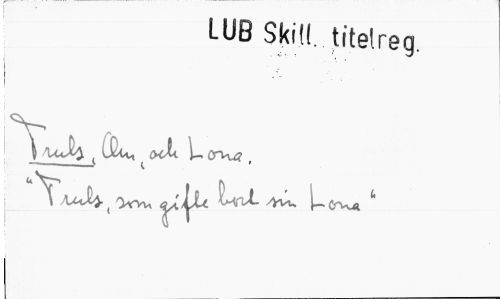 LUB Skill. titelreg.
Truls, Om, och Lona.
"Truls, som gifte bort sin Lona"